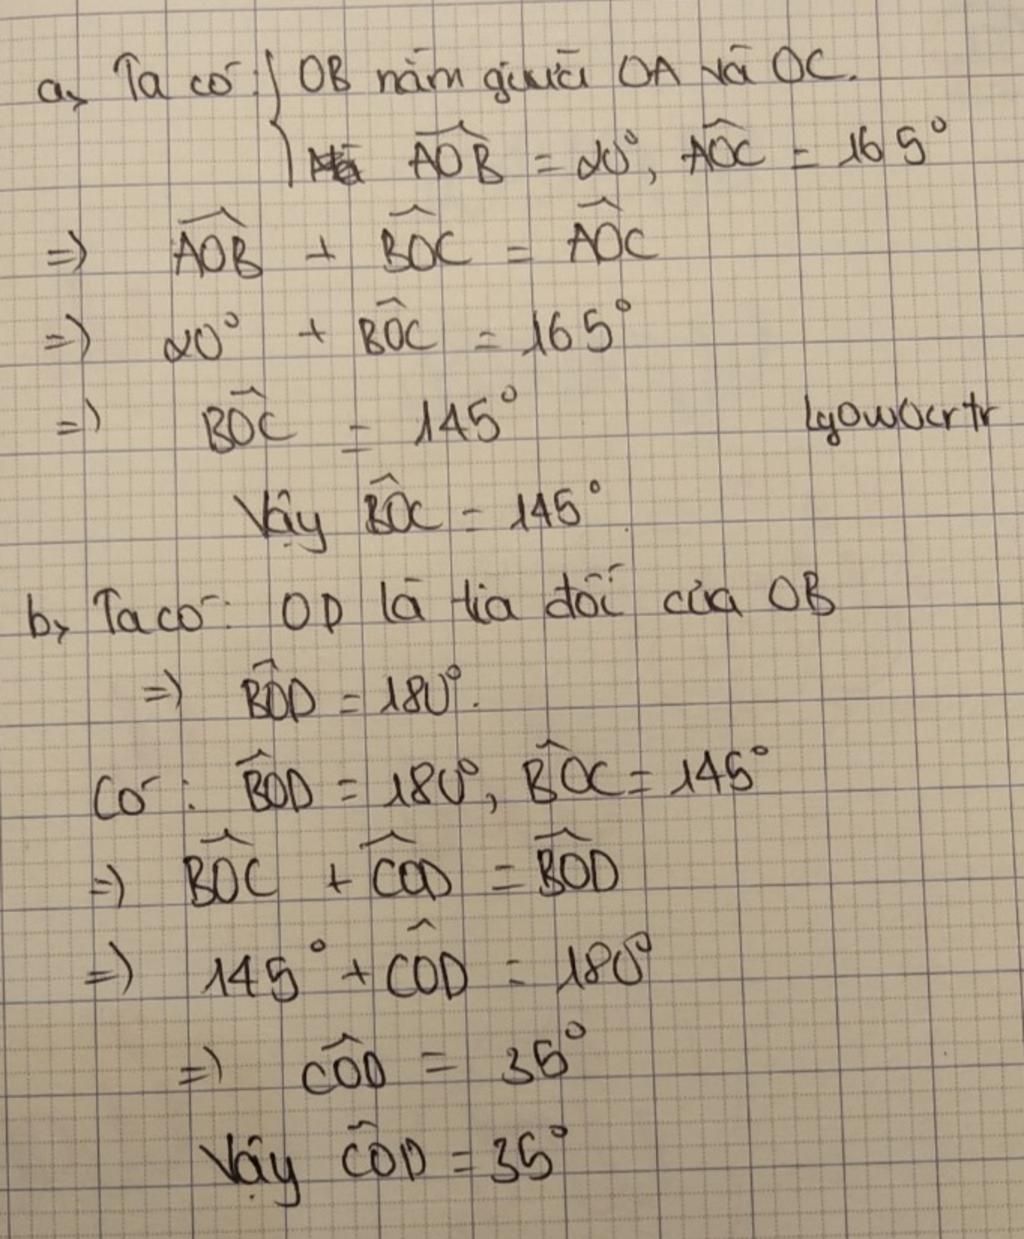 a, Ta có: { OB nằm giữa OA và OC.
AOB = 20°, AOC = 165°
=) AOB + BOC = AOC
=) 20° + BOC = 165°
=) BOC = 145°
lgowocrtr
Vậy BOC = 145°
b, Ta có: OD là tia đối của OB
=) BOD = 180°.
Có: BOD = 180°, BOC = 145°
=) BOC + COD = BOD
=) 145° + COD = 180°
=) COD = 35°
Vậy COD = 35°